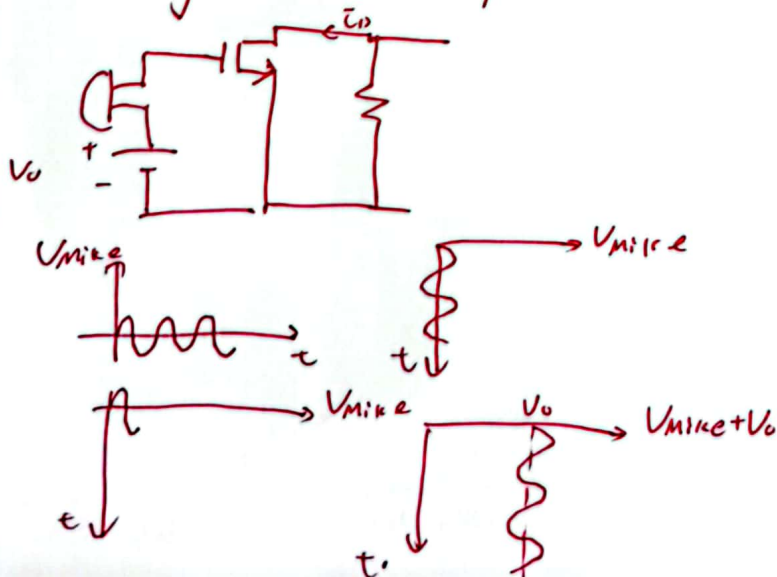 i_D
+
V_0
-
V_Mike
V_Mike
t
t
V_Mike
V_0
V_Mike+V_0
t
t.